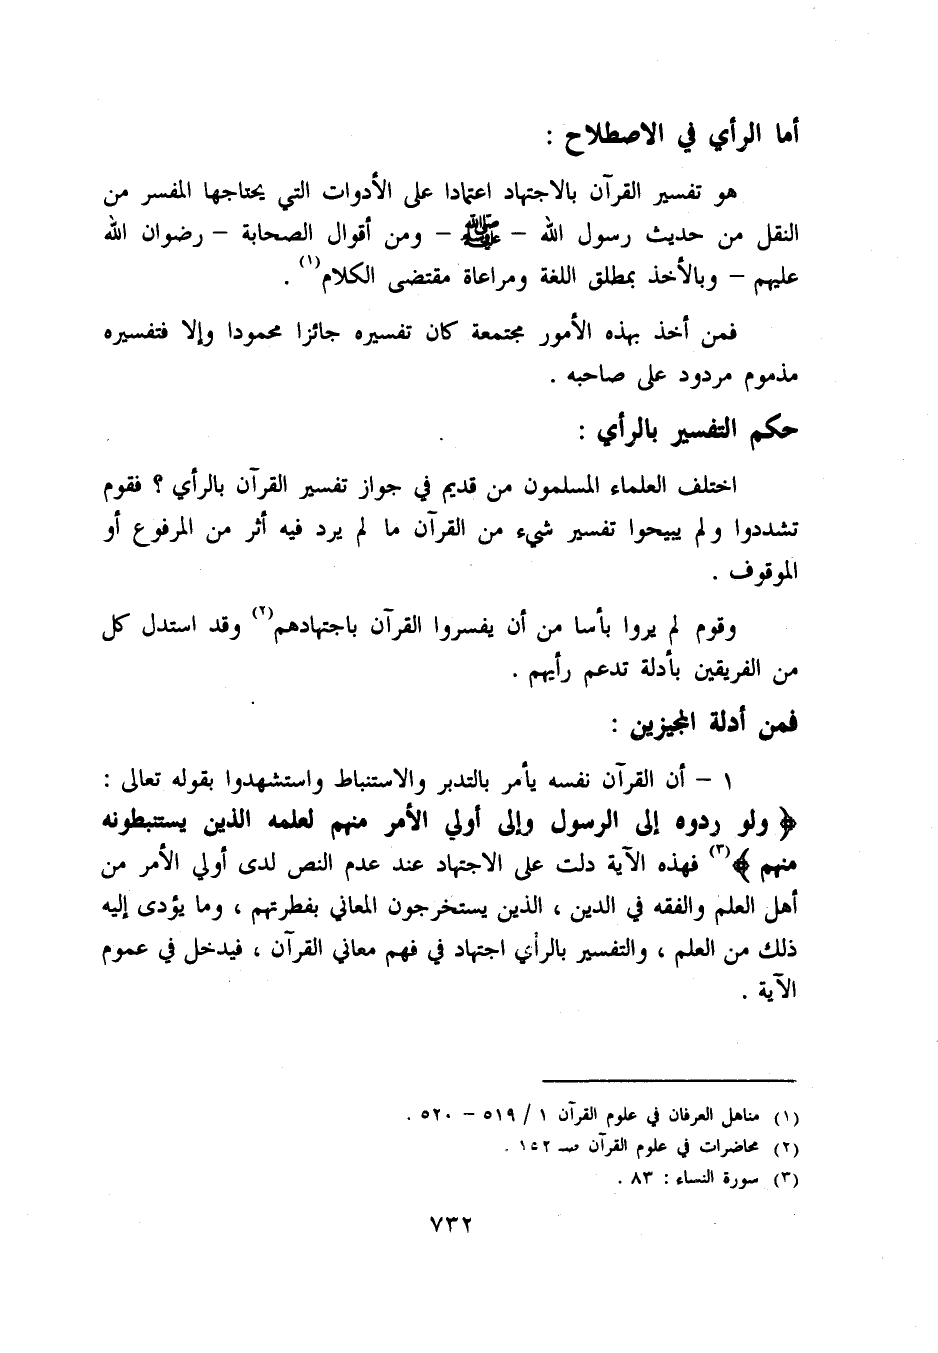 أما الرأي في الاصطلاح :
هو تفسير القرآن بالاجتهاد اعتمادا على الأدوات التي يحتاجها المفسر من
النقل من حديث رسول الله – ﷺ – ومن أقوال الصحابة – رضوان الله
عليهم – وبالأخذ بمطلق اللغة ومراعاة مقتضى الكلام(١) .
فمن أخذ بهذه الأمور مجتمعة كان تفسيره جائزا محمودا وإلا فتفسيره
مذموم مردود على صاحبه .
حكم التفسير بالرأي :
اختلف العلماء المسلمون من قديم في جواز تفسير القرآن بالرأي ؟ فقوم
تشددوا ولم يبيحوا تفسير شيء من القرآن ما لم يرد فيه أثر من المرفوع أو
الموقوف .
وقوم لم يروا بأسا من أن يفسروا القرآن باجتهادهم(٢) وقد استدل كل
من الفريقين بأدلة تدعم رأيهم .
فمن أدلة المجيزين :
١ – أن القرآن نفسه يأمر بالتدبر والاستنباط واستشهدوا بقوله تعالى :
﴿ ولو ردوه إلى الرسول وإلى أولي الأمر منهم لعلمه الذين يستنبطونه
منهم ﴾(٣) فهذه الآية دلت على الاجتهاد عند عدم النص لدى أولي الأمر من
أهل العلم والفقه في الدين ، الذين يستخرجون المعاني بفطرتهم ، وما يؤدى إليه
ذلك من العلم ، والتفسير بالرأي اجتهاد في فهم معاني القرآن ، فيدخل في عموم
الآية .
(١) مناهل العرفان في علوم القرآن ١ / ٥١٩ – ٥٢٠ .
(٢) محاضرات في علوم القرآن صـ ١٤٢ .
(٣) سورة النساء : ٨٣ .
٧٣٢